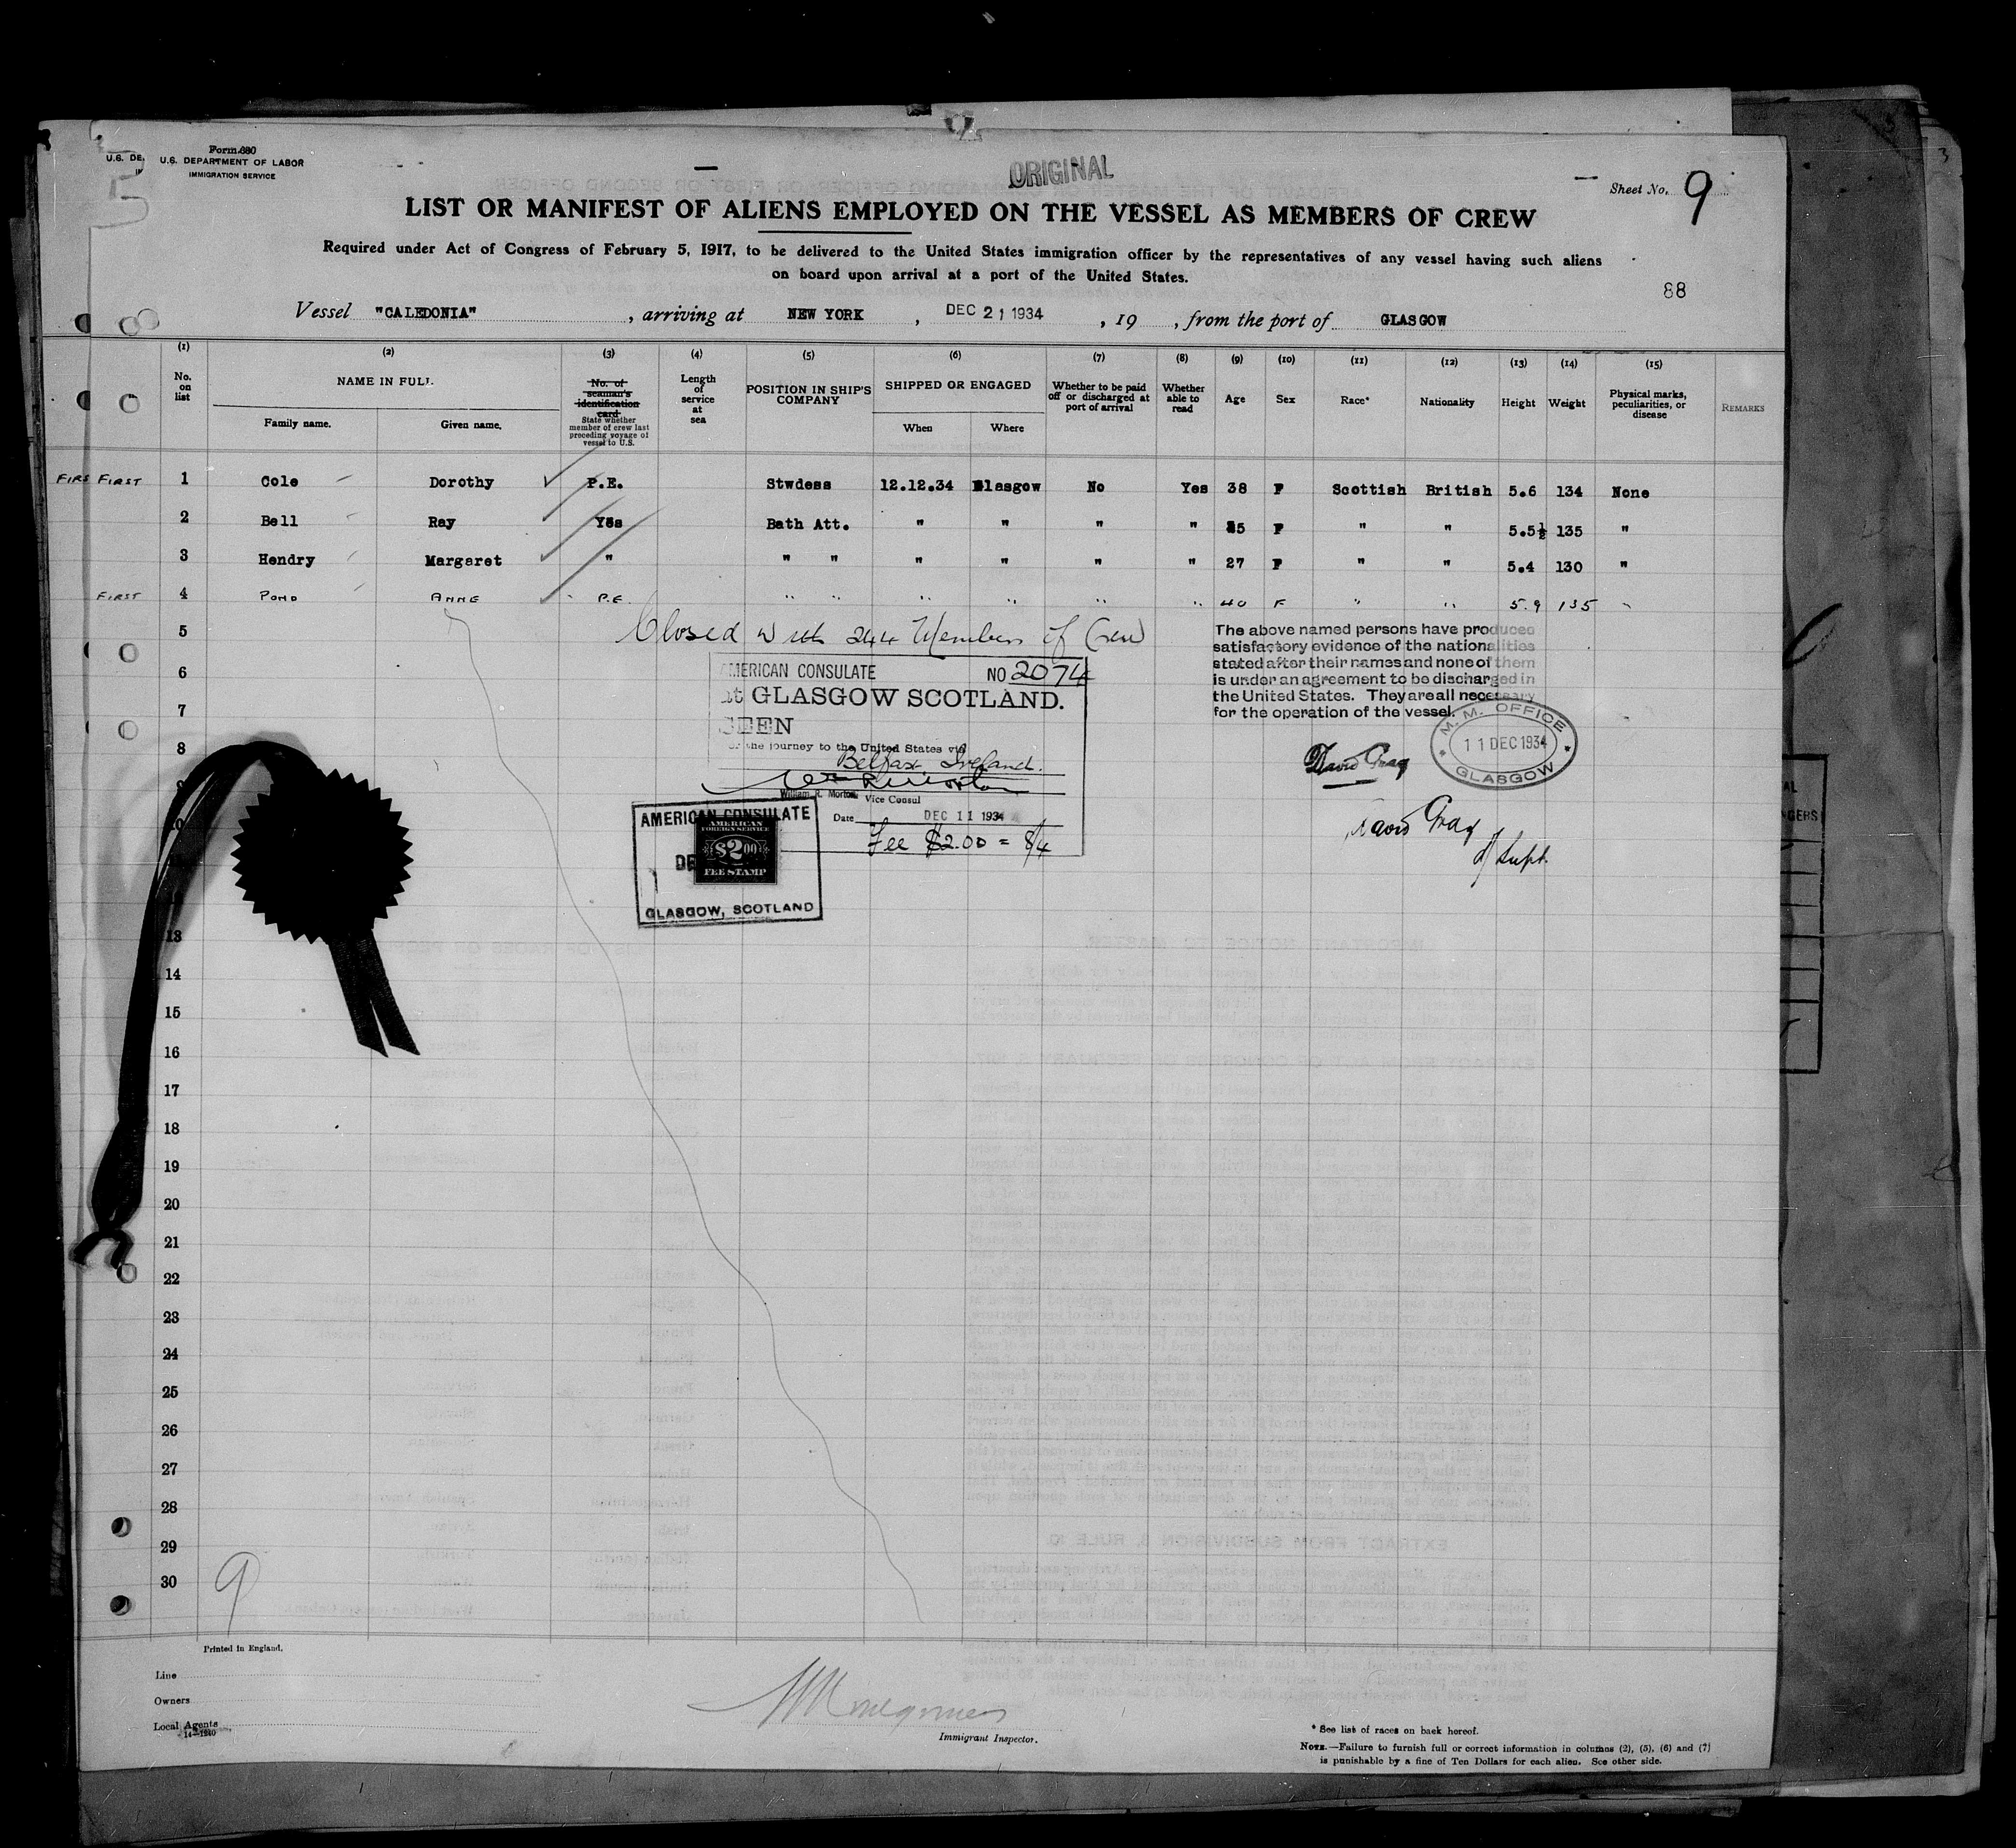 Form 680
U.S. DE.
U.S. DEPARTMENT OF LABOR
IMMIGRATION SERVICE
ORIGINAL
Sheet No. 9
LIST OR MANIFEST OF ALIENS EMPLOYED ON THE VESSEL AS MEMBERS OF CREW
Required under Act of Congress of February 5, 1917, to be delivered to the United States immigration officer by the representatives of any vessel having such aliens
on board upon arrival at a port of the United States.
88
Vessel "CALEDONIA", arriving at NEW YORK, DEC 21 1934, 19, from the port of GLASGOW
(1) (2) (3) (4) (5) (6) (7) (8) (9) (10) (11) (12) (13) (14) (15)
No. on list
NAME IN FULL
Family name. Given name.
No. of seaman's identification card
State whether member of crew last preceding voyage of vessel to U.S.
Length of service at sea
POSITION IN SHIP'S COMPANY
SHIPPED OR ENGAGED
When Where
Whether to be paid off or discharged at port of arrival
Whether able to read
Age
Sex
Race*
Nationality
Height
Weight
Physical marks, peculiarities, or disease
REMARKS
FIRS FIRST 1 Cole Dorothy P.E. Stwdess 12.12.34 Glasgow No Yes 38 F Scottish British 5.6 134 None
2 Bell Ray Yes Bath Att. " " " " 5 F " " 5.5½ 135 "
3 Hendry Margaret " " " " " " " 27 F " " 5.4 130 "
FIRST 4 POND ANNE P.E. " " " " " " 40 F " " 5.9 135 "
5
Closed with 244 Members of Crew
The above named persons have produced
satisfactory evidence of the nationalities
stated after their names and none of them
is under an agreement to be discharged in
the United States. They are all necessary
for the operation of the vessel.
6
7
8
9
10
AMERICAN CONSULATE NO 2074
at GLASGOW SCOTLAND.
SEEN
for the journey to the United States via
Belfast Ireland.
William R. Morton
Vice Consul
Date DEC 11 1934
Fee $2.00 = 8/4
M. M. OFFICE
11 DEC 1934
GLASGOW
David Gray
David Gray
d/ Supt.
AMERICAN CONSULATE
DE
AMERICAN
FOREIGN SERVICE
$2.00
FEE STAMP
GLASGOW, SCOTLAND
13
14
15
16
17
18
19
20
21
22
23
24
25
26
27
28
29
30
9
Printed in England.
Line
Owners
Local Agents
14-1240
Immigrant Inspector.
* See list of races on back hereof.
NOTE.—Failure to furnish full or correct information in columns (2), (5), (6) and (7)
is punishable by a fine of Ten Dollars for each alien. See other side.